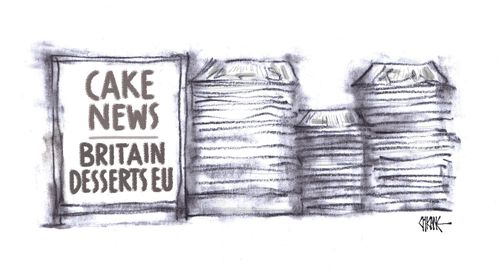 CAKE
NEWS
BRITAIN
DESSERTS EU